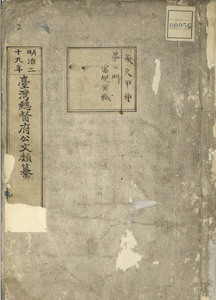 00036
永久甲種
第二門
官規官職
明治二
十九年
臺灣總督府公文類纂